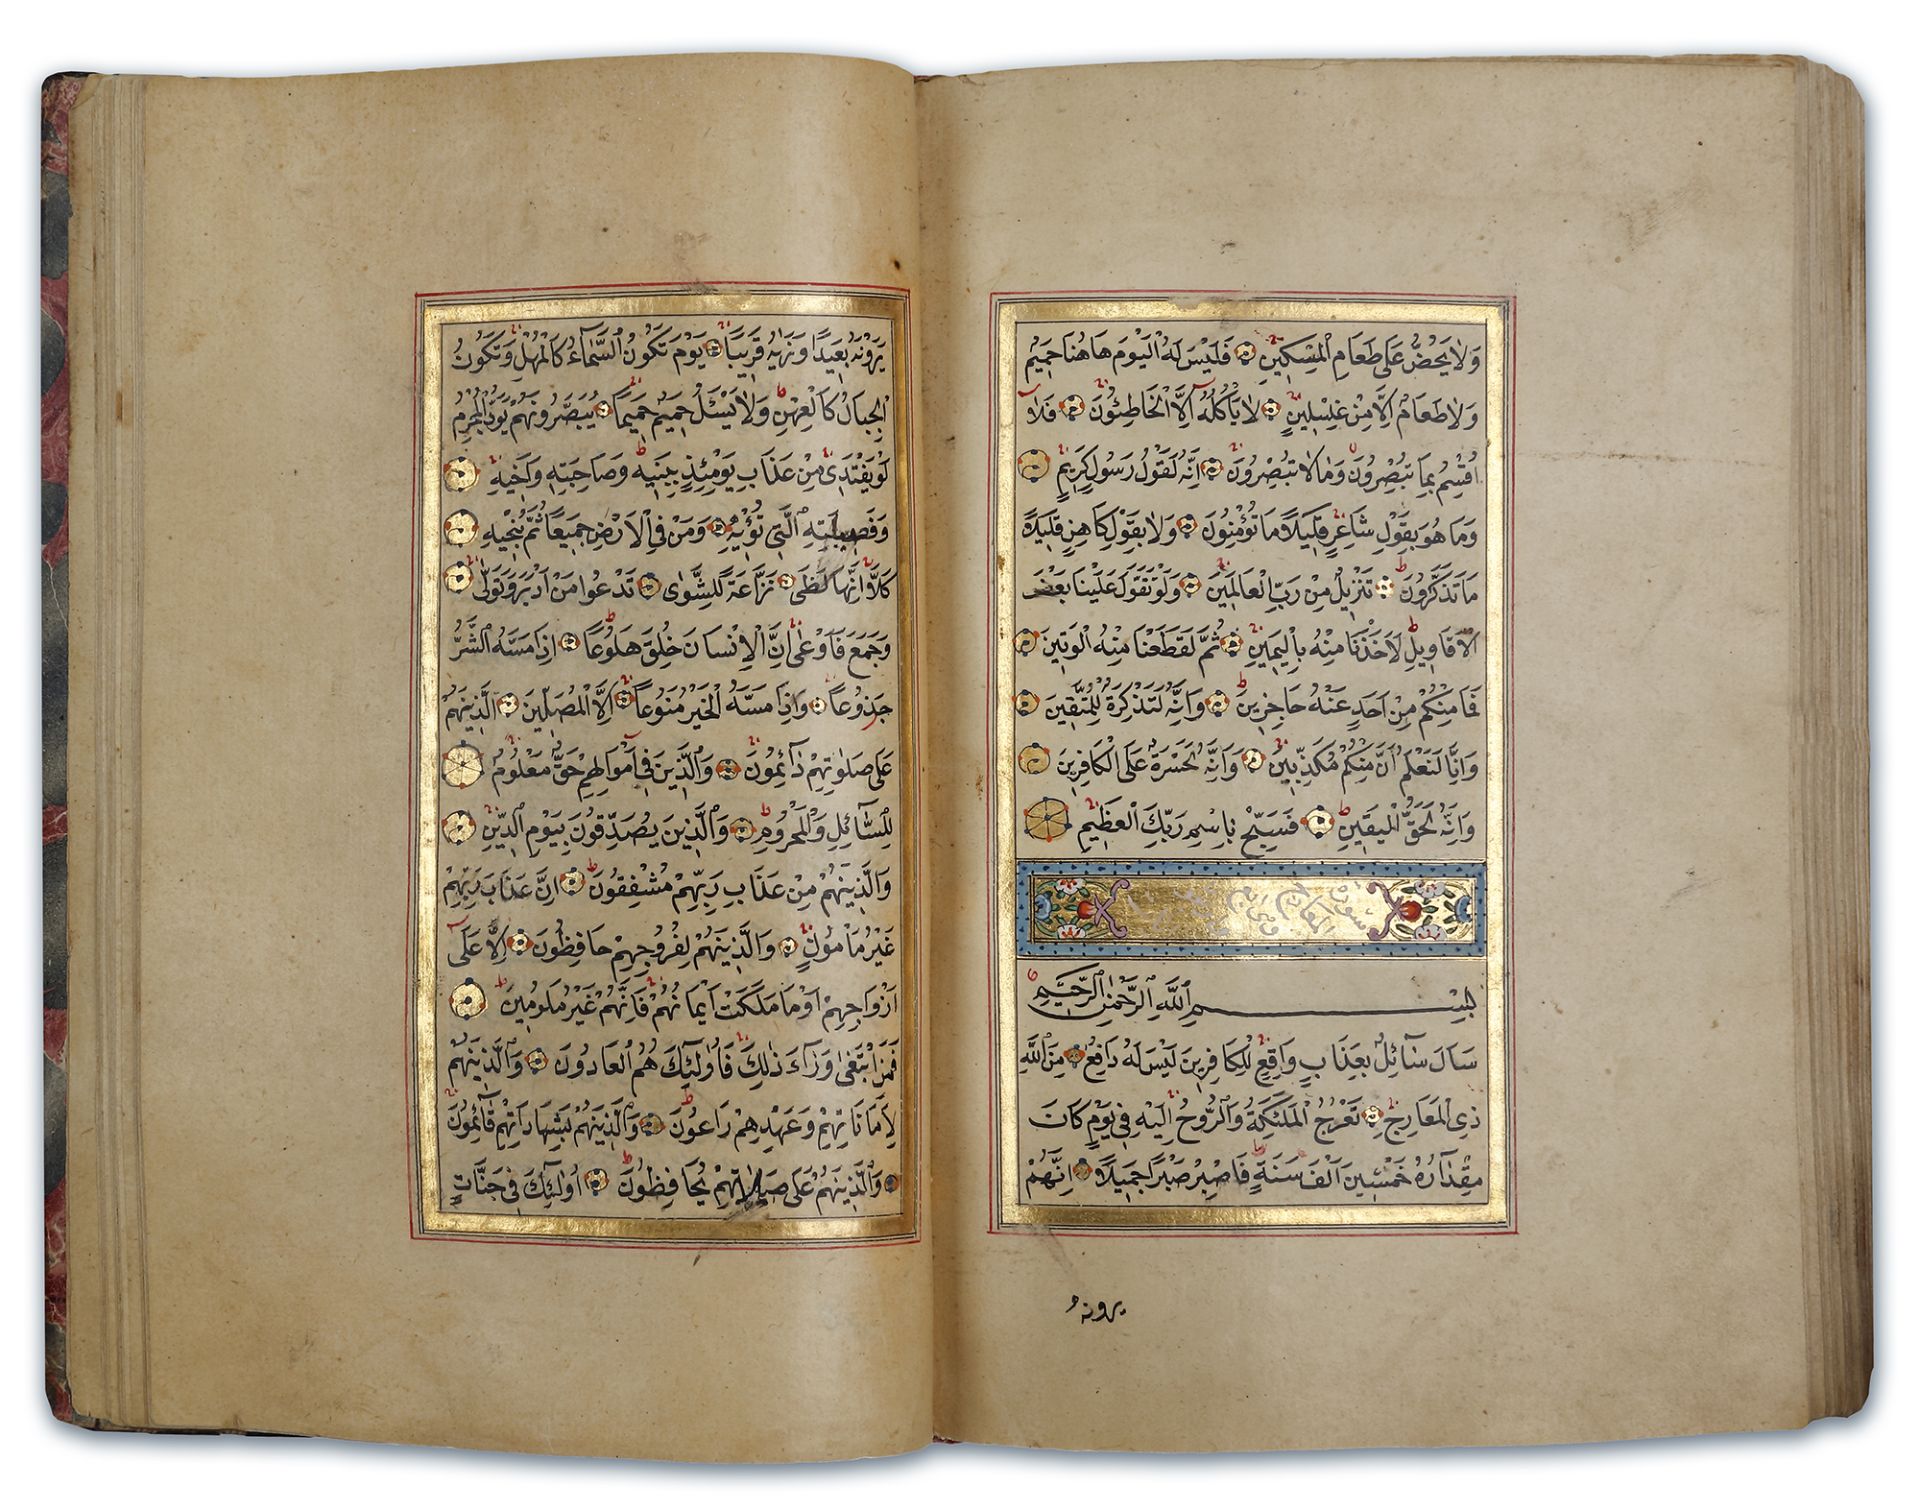 وَلَا يَحُضُّ عَلٰى طَعَامِ الْمِسْكِينِ فَلَيْسَ لَهُ الْيَوْمَ هَاهُنَا حَمِيمٌ
وَلَا طَعَامٌ اِلَّا مِنْ غِسْلِينٍ لَا يَأْكُلُهُ اِلَّا الْخَاطِئُونَ فَلَا
اُقْسِمُ بِمَا تُبْصِرُونَ وَمَا لَا تُبْصِرُونَ اِنَّهُ لَقَوْلُ رَسُولٍ كَرِيمٍ
وَمَا هُوَ بِقَوْلِ شَاعِرٍ قَلِيلًا مَا تُؤْمِنُونَ وَلَا بِقَوْلِ كَاهِنٍ قَلِيلًا
مَا تَذَكَّرُونَ تَنْزِيلٌ مِنْ رَبِّ الْعَالَمِينَ وَلَوْ تَقَوَّلَ عَلَيْنَا بَعْضَ
الْاَقَاوِيلِ لَاَخَذْنَا مِنْهُ بِالْيَمِينِ ثُمَّ لَقَطَعْنَا مِنْهُ الْوَتِينَ
فَمَا مِنْكُمْ مِنْ اَحَدٍ عَنْهُ حَاجِزِينَ وَاِنَّهُ لَتَذْكِرَةٌ لِلْمُتَّقِينَ
وَاِنَّا لَنَعْلَمُ اَنَّ مِنْكُمْ مُكَذِّبِينَ وَاِنَّهُ لَحَسْرَةٌ عَلَى الْكَافِرِينَ
وَاِنَّهُ لَحَقُّ الْيَقِينِ فَسَبِّحْ بِاسْمِ رَبِّكَ الْعَظِيمِ
سورة المعارج
بِسْمِ اللّٰهِ الرَّحْمٰنِ الرَّحِيمِ
سَاَلَ سَآئِلٌ بِعَذَابٍ وَاقِعٍ لِلْكَافِرِينَ لَيْسَ لَهُ دَافِعٌ مِنَ اللّٰهِ
ذِي الْمَعَارِجِ تَعْرُجُ الْمَلٰئِكَةُ وَالرُّوحُ اِلَيْهِ فِي يَوْمٍ كَانَ
مِقْدَارُهُ خَمْسِينَ اَلْفَ سَنَةٍ فَاصْبِرْ صَبْرًا جَمِيلًا اِنَّهُمْ
يرونه
يَرَوْنَهُ بَعِيدًا وَنَرٰيهُ قَرِيبًا يَوْمَ تَكُونُ السَّمَآءُ كَالْمُهْلِ وَتَكُونُ
الْجِبَالُ كَالْعِهْنِ وَلَا يَسْئَلُ حَمِيمٌ حَمِيمًا يُبَصَّرُونَهُمْ يَوَدُّ الْمُجْرِمُ
لَوْ يَفْتَدِي مِنْ عَذَابِ يَوْمِئِذٍ بِبَنِيهِ وَصَاحِبَتِهِ وَاَخِيهِ
وَفَصِيلَتِهِ الَّتِي تُؤْيِهِ وَمَنْ فِي الْاَرْضِ جَمِيعًا ثُمَّ يُنْجِيهِ
كَلَّا اِنَّهَا لَظٰى نَزَّاعَةً لِلشَّوٰى تَدْعُوا مَنْ اَدْبَرَ وَتَوَلّٰى
وَجَمَعَ فَاَوْعٰى اِنَّ الْاِنْسَانَ خُلِقَ هَلُوعًا اِذَا مَسَّهُ الشَّرُّ
جَذُوعًا وَاِذَا مَسَّهُ الْخَيْرُ مَنُوعًا اِلَّا الْمُصَلِّينَ الَّذِينَ هُمْ
عَلٰى صَلٰوتِهِمْ دَآئِمُونَ وَالَّذِينَ فِي اَمْوَالِهِمْ حَقٌّ مَعْلُومٌ
لِلسَّآئِلِ وَالْمَحْرُومِ وَالَّذِينَ يُصَدِّقُونَ بِيَوْمِ الدِّينِ
وَالَّذِينَ هُمْ مِنْ عَذَابِ رَبِّهِمْ مُشْفِقُونَ اِنَّ عَذَابَ رَبِّهِمْ
غَيْرُ مَأْمُونٍ وَالَّذِينَ هُمْ لِفُرُوجِهِمْ حَافِظُونَ اِلَّا عَلٰى
اَزْوَاجِهِمْ اَوْ مَا مَلَكَتْ اَيْمَانُهُمْ فَاِنَّهُمْ غَيْرُ مَلُومِينَ
فَمَنِ ابْتَغٰى وَرَآءَ ذٰلِكَ فَاُولٰٓئِكَ هُمُ الْعَادُونَ وَالَّذِينَ هُمْ
لِاَمَانَاتِهِمْ وَعَهْدِهِمْ رَاعُونَ وَالَّذِينَ هُمْ بِشَهَادَاتِهِمْ قَآئِمُونَ
وَالَّذِينَ هُمْ عَلٰى صَلَاتِهِمْ يُحَافِظُونَ اُولٰٓئِكَ فِي جَنَّاتٍ